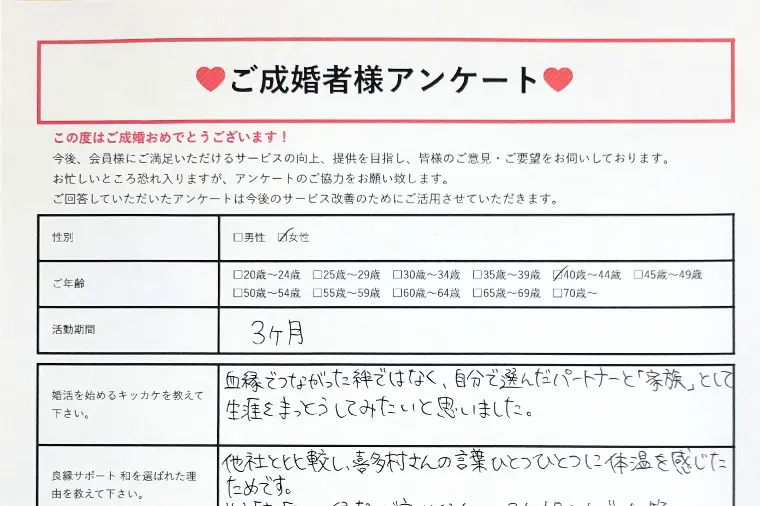 ♥ご成婚者様アンケート♥
この度はご成婚おめでとうございます！
今後、会員様にご満足いただけるサービスの向上、提供を目指し、皆様のご意見・ご要望をお伺いしております。
お忙しいところ恐れ入りますが、アンケートのご協力をお願い致します。
ご回答していただいたアンケートは今後のサービス改善のためにご活用させていただきます。
性別
□男性 ☑女性
ご年齢
□20歳〜24歳 □25歳〜29歳 □30歳〜34歳 □35歳〜39歳 ☑40歳〜44歳 □45歳〜49歳
□50歳〜54歳 □55歳〜59歳 □60歳〜64歳 □65歳〜69歳 □70歳〜
活動期間
3ヶ月
婚活を始めるキッカケを教えて
下さい。
血縁でつながった絆ではなく、自分で選んだパートナーと「家族」として
生涯をまっとうしてみたいと思いました。
良縁サポート 和を選ばれた理
由を教えて下さい。
他社と比較し、喜多村さんの言葉ひとつひとつに体温を感じた
ためです。